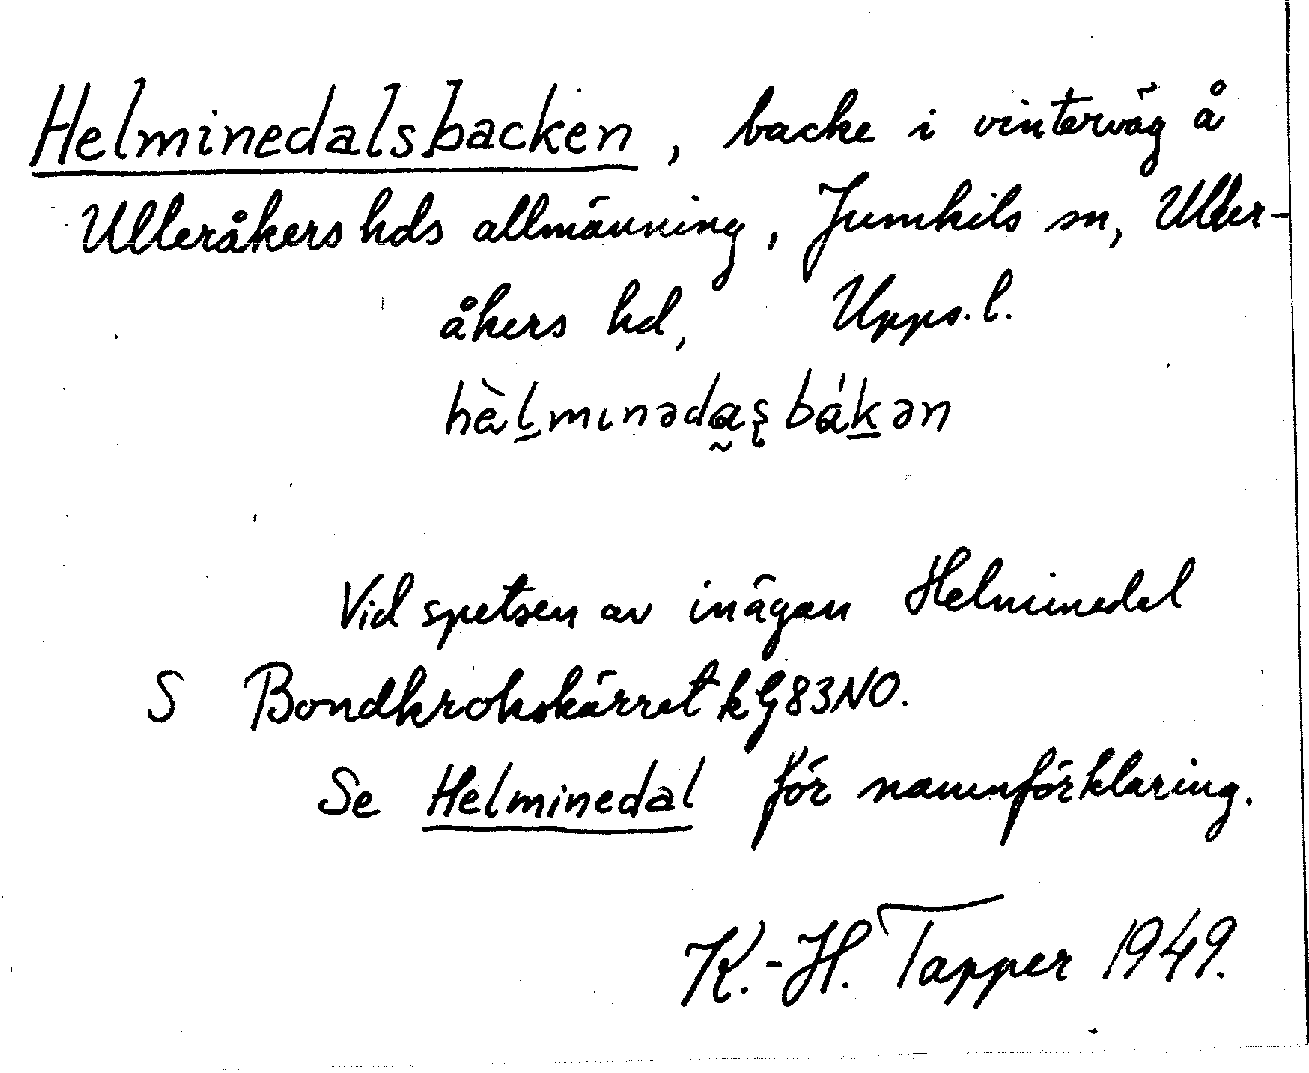 Helminedalsbacken, backe i vinterväg å
Ulleråkers hds allmänning, Jumkils sn, Uller-
åkers hd, Upps. l.
hèl̠mɩnəda̰ʂbák̠ən
Vid spetsen av inägan Helminedal
S Bondkrokskärret kG83NO.
Se Helminedal för namnförklaring.
K.-H. Tapper 1949.